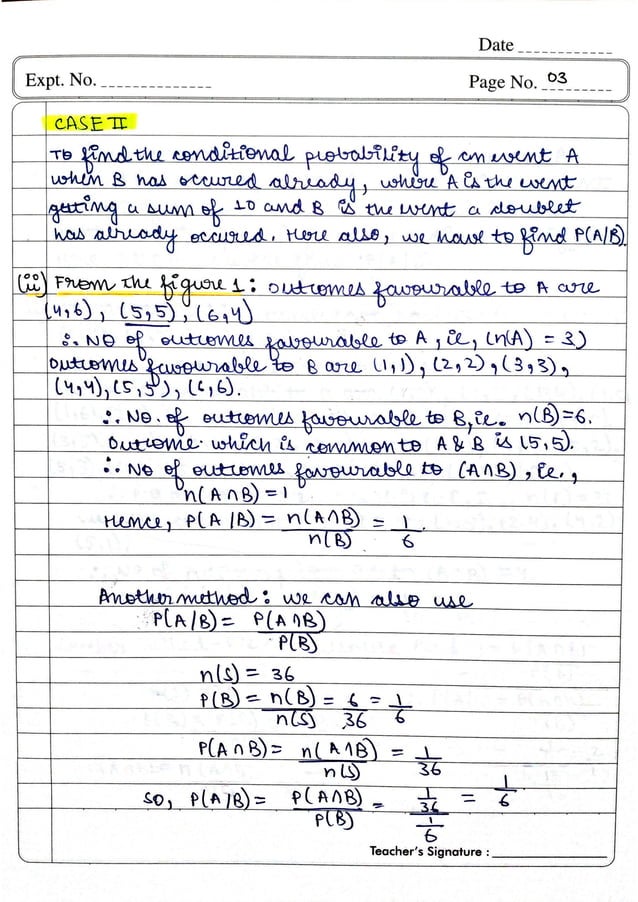 Date
Expt. No.
Page No. 03
CASE II
To find the conditional probability of an event A
when B has occured already, where A is the event
getting a sum of 10 and B is the event a doublet
has already occured. Here also, we have to find P(A/B).
(ii) From the figure 1: outcomes favourable to A are
(4,6), (5,5), (6,4)
∴ No of outcomes favourable to A, ie, (n(A) = 3)
Outcomes favourable to B are (1,1), (2,2), (3,3),
(4,4), (5,5), (6,6).
∴ No. of outcomes favourable to B, ie. n(B)=6.
Outcome which is common to A & B is (5,5).
∴ No of outcomes favourable to (A∩B), ie.,
n(A∩B) = 1
Hence, P(A/B) = n(A∩B) = 1
n(B) 6
Another method: we can also use
P(A/B) = P(A∩B)
P(B)
n(S) = 36
P(B) = n(B) = 6 = 1
n(S) 36 6
P(A∩B) = n(A∩B) = 1
n(S) 36
So, P(A/B) = P(A∩B) = 1/36 = 1/6
P(B) 1/6
Teacher's Signature :